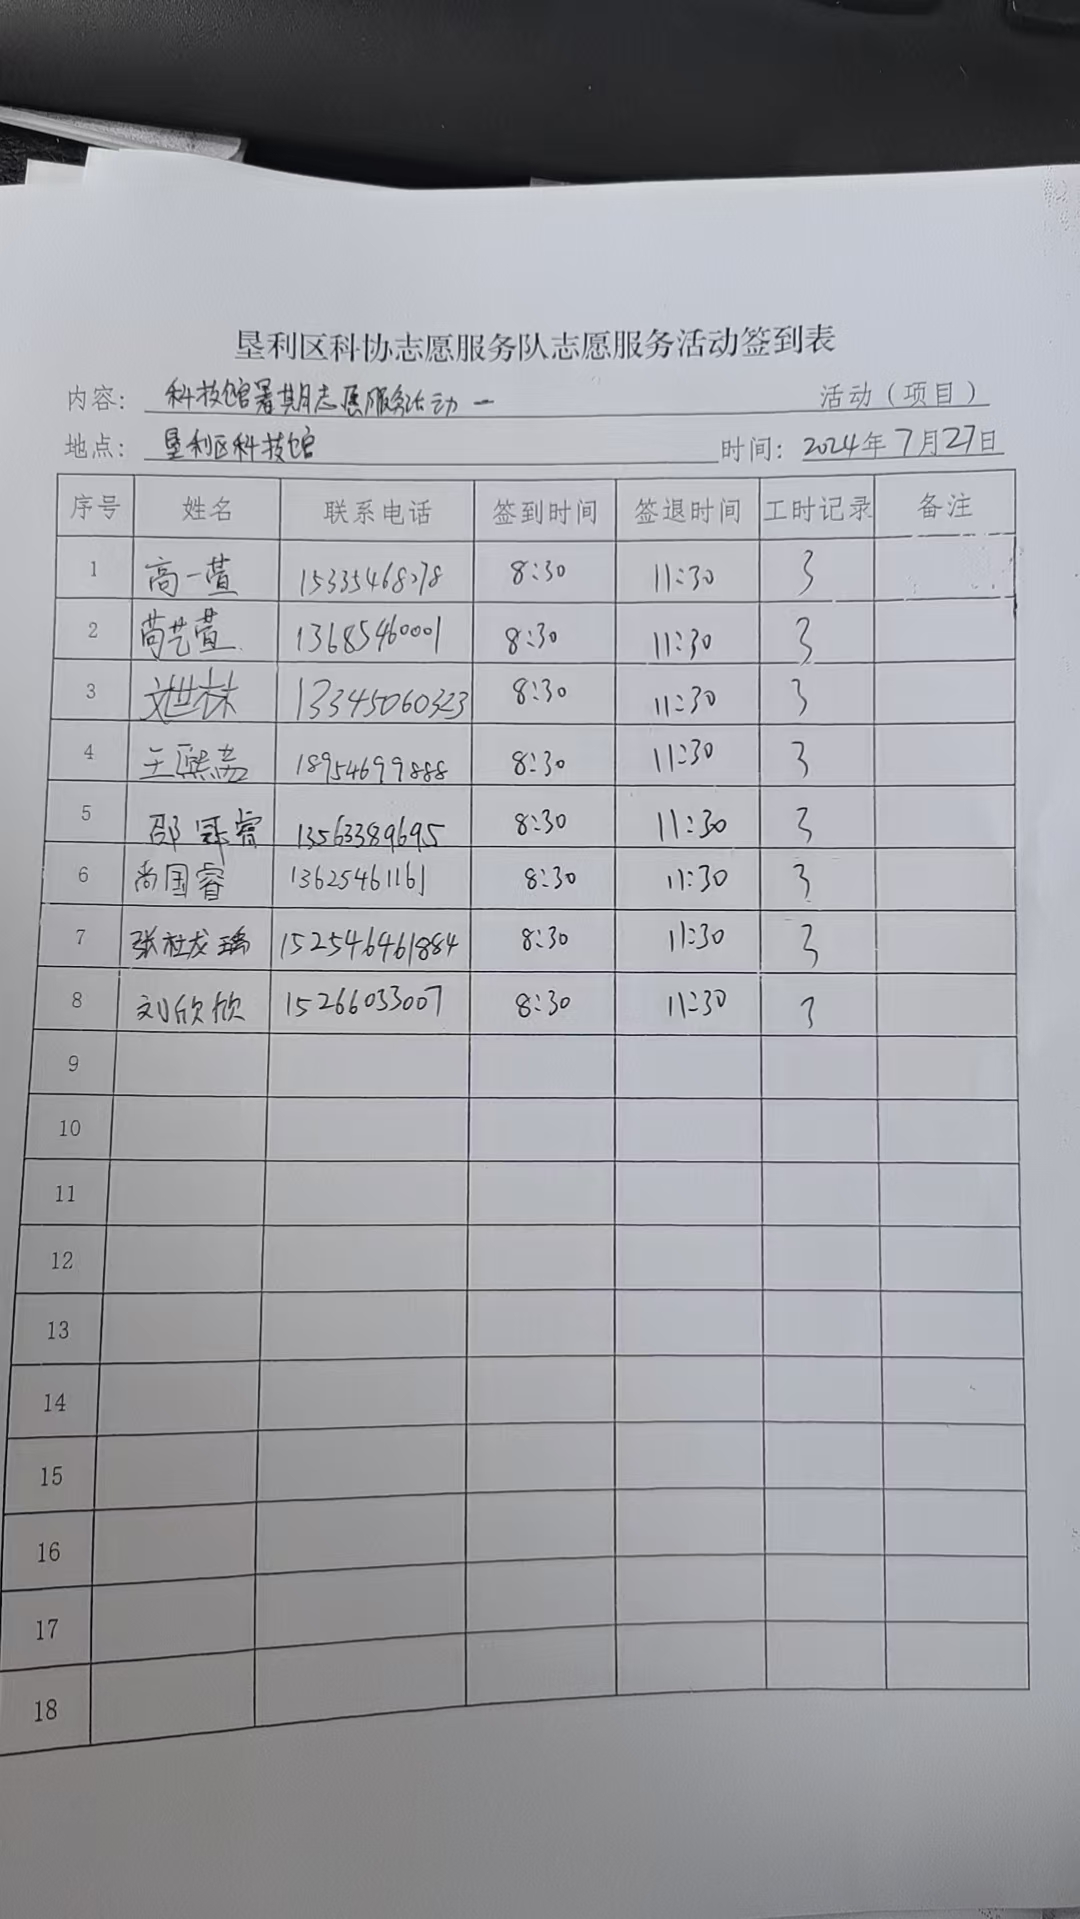 垦利区科协志愿服务队志愿服务活动签到表
内容： 科技馆署期志愿服务活动一 活动（项目）
地点： 垦利区科技馆 时间：2024年7月27日
序号 姓名 联系电话 签到时间 签退时间 工时记录 备注
1 高一萱 15335468278 8:30 11:30 3
2 苟艺萱 13685460001 8:30 11:30 3
3 世林 13345060323 8:30 11:30 3
4 王熙 18954699888 8:30 11:30 3
5 邵 睿 13563389695 8:30 11:30 3
6 尚国睿 13625461161 8:30 11:30 3
7 张杜龙瑀 152546461884 8:30 11:30 3
8 刘欣欣 15266033007 8:30 11:30 3
9
10
11
12
13
14
15
16
17
18